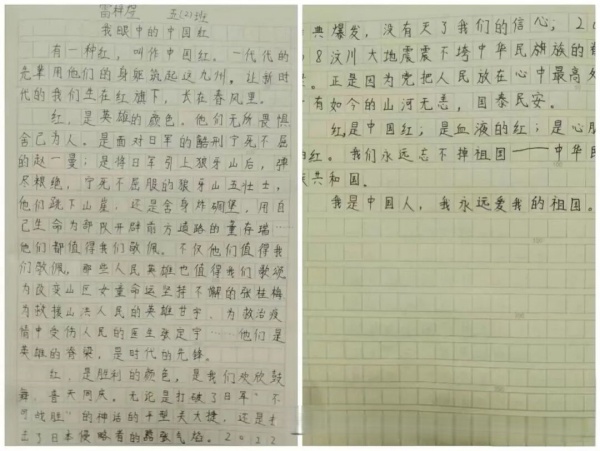 雷梓煜 五(2)班
我眼中的中国红
有一种红，叫作中国红。一代代的
先辈用他们的身躯筑起这九州。让新时
代的我们生在红旗下，长在春风里。
红，是英雄的颜色。他们无所畏惧
舍己为人。是面对日军的酷刑宁死不屈
的赵一曼；是将日军引上狼牙山后，弹
尽粮绝，宁死不屈服的狼牙山五壮士，
他们跳下山崖。还是舍身炸碉堡，用自
己生命为部队开辟前方道路的董存瑞……
他们都值得我们敬佩。不仅他们值得我
们敬佩，那些人民英雄也值得我们歌颂
为改变山区女童命运坚持不懈的张桂梅
为救援山洪人民的英雄甘宇、为救治疫
情中受伤人民的医生张定宇……他们是
英雄的脊梁，是时代的先锋。
红，是胜利的颜色，是我们欢欣鼓
舞、普天同庆。无论是打破了日军“不
可战胜”的神话的平型关大捷，还是打
击了日本侵略者的嚣张气焰。2022
典爆发，没有灭了我们的信心，20
8汶川大地震震不垮中华民族族的
。正是因为党把人民放在心中最高
有如今的山河无恙，国泰民安。
红是中国红；是血液的红；是心脏
的红。我们永远忘不掉祖国——中华民
共和国。
我是中国人，我永远爱我的祖国。